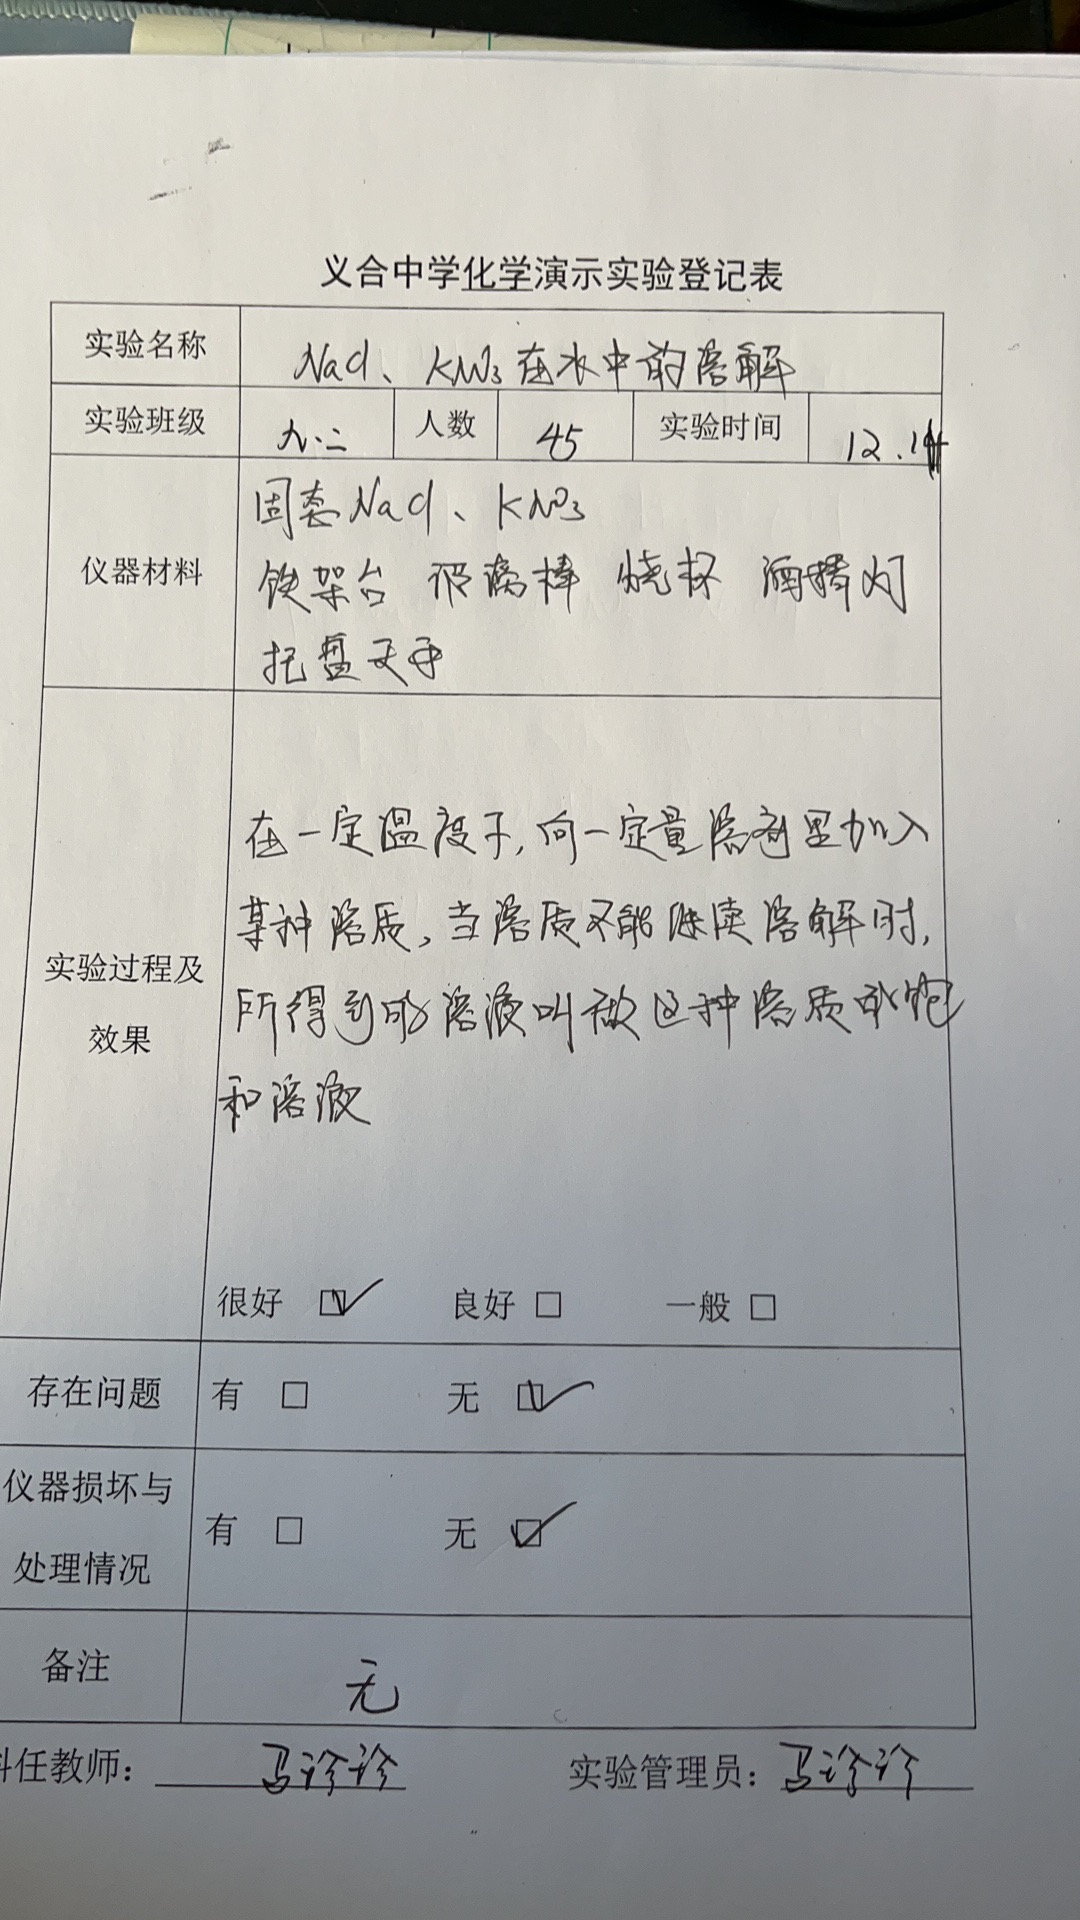 义合中学化学演示实验登记表
实验名称 NaCl、KNO3在水中的溶解
实验班级 九.二 人数 45 实验时间 12.14
仪器材料
固态NaCl、KNO3
铁架台 玻璃棒 烧杯 酒精灯
托盘天平
实验过程及
效果
在一定温度下,向一定量溶剂里加入
某种溶质,当溶质不能继续溶解时,
所得到的溶液叫做这种溶质的饱
和溶液
很好 ☑ 良好 □ 一般 □
存在问题 有 □ 无 ☑
仪器损坏与
处理情况
有 □ 无 ☑
备注 无
科任教师: 马诊诊 实验管理员: 马诊诊